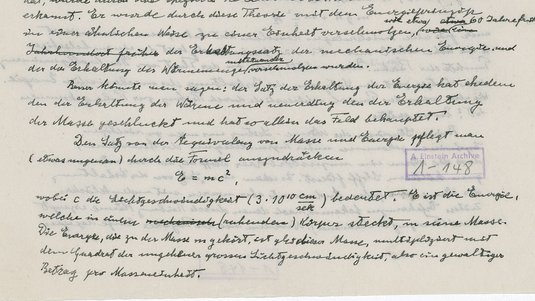 erkannt. Er wurde durch diese Theorie mit dem Energieprinzip
wie etwa 60 Jahre früher
in einer ähnlichen Weise zu einer Einheit verschmolzen,
Jahrhundert früher der Erhaltungssatz der mechanischen Energie und
miteinander
der der Erhaltung der Wärmemenge verschmolzen wurden.
könnte man sagen: der Satz der Erhaltung der Energie hat
den der Erhaltung der Wärme und neuerdings den der Erhaltung
der Masse geschluckt und hat so allein das Feld behauptet.
Den Satz von der Aequivalenz von Masse und Energie pflegt man
(etwas ungenau) durch die Formel auszudrücken
E = mc²,
wobei c die Lichtgeschwindigkeit (3 · 10¹⁰ cm/sek) bedeutet. E ist die Energie,
welche in einem mechanisch (ruhenden) Körper steckt, m seine Masse.
Die Energie, die zu der Masse m gehört, ist gleich dieser Masse, multipliziert mit
dem Quadrat der ungeheuer grossen Lichtgeschwindigkeit, also ein gewaltiger
Betrag pro Masseneinheit.
A. Einstein Archive
1-148